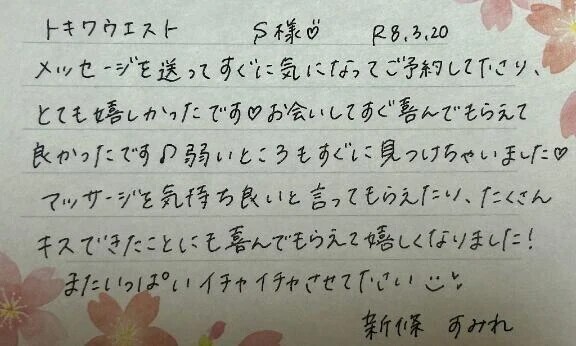 トキワウエスト S様♡ R8.3.20
メッセージを送ってすぐに気になってご予約して下さり、
とても嬉しかったです♡お会いしてすぐ喜んでもらえて
良かったです♪弱いところもすぐに見つけちゃいました♡
マッサージを気持ち良いと言ってもらえたり、たくさん
キスできたことにも喜んでもらえて嬉しくなりました!
またいっぱいイチャイチャさせて下さい
新條 すみれ